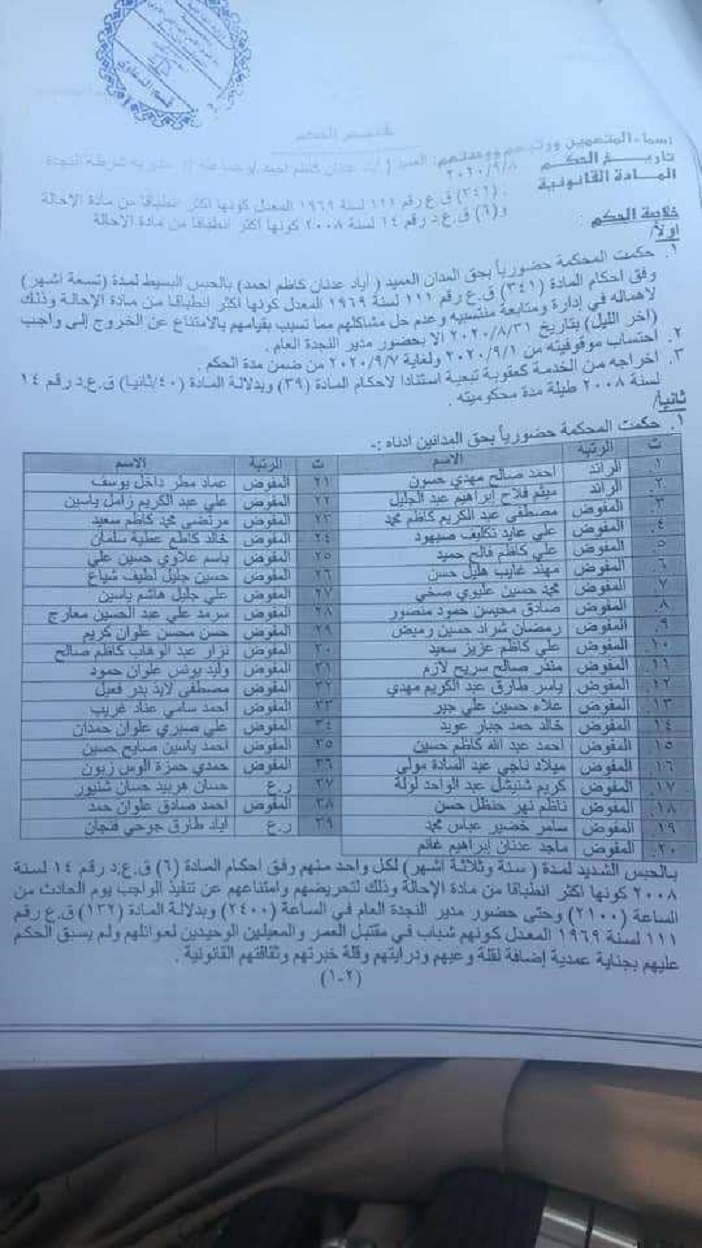 قسم الحكم
اسماء المتهمين ورتبهم ووحدتهم: العميد (اياد عدنان كاظم احمد) وجماعته / مديرية شرطة النجدة
تاريخ الحكم ٢٠٢٠/٩/٨
المادة القانونية (٣٤١) ق.ع رقم ١١١ لسنة ١٩٦٩ المعدل كونها اكثر انطباقا من مادة الإحالة
و(٦) ق.ع.د رقم ١٤ لسنة ٢٠٠٨ كونها اكثر انطباقا من مادة الاحالة
خلاصة الحكم :
اولا/
١. حكمت المحكمة حضورياً بحق المدان العميد (اياد عدنان كاظم احمد) بالحبس البسيط لمدة (تسعة اشهر)
وفق احكام المادة (٣٤١) ق.ع رقم ١١١ لسنة ١٩٦٩ المعدل كونها اكثر انطباقا من مادة الإحالة وذلك
لاهماله في إدارة ومتابعة منتسبيه وعدم حل مشاكلهم مما تسبب بقيامهم بالامتناع عن الخروج إلى واجب
(اخر الليل) بتاريخ ٢٠٢٠/٨/٣١ الا بحضور مدير النجدة العام .
٢. احتساب موقوفيته من ٢٠٢٠/٩/١ ولغاية ٢٠٢٠/٩/٧ من ضمن مدة الحكم .
٣. اخراجه من الخدمة كعقوبة تبعية استنادا لاحكام المادة (٣٩) وبدلالة المادة (٤٠/ثانيا) ق.ع.د رقم ١٤
لسنة ٢٠٠٨ طيلة مدة محكوميته .
ثانيا/
١. حكمت المحكمة حضورياً بحق المدانين ادناه :-
ت الرتبة الاسم ت الرتبة الاسم
١. الرائد احمد صالح مهدي حسون ٢١ المفوض عماد مطر داخل يوسف
٢. الرائد ميثم فلاح ابراهيم عبد الجليل ٢٢ المفوض علي عبد الكريم زامل ياسين
٣. المفوض مصطفى عبد الكريم كاظم محمد ٢٣ المفوض مرتضى محمد كاظم سعيد
٤. المفوض علي عايد تكليف صيهود ٢٤ المفوض خالد كاظم عطية سلمان
٥. المفوض علي كاظم فالح حميد ٢٥ المفوض باسم علاوي حسين علي
٦. المفوض مهند غايب هليل حسن ٢٦ المفوض حسين جليل لطيف شياع
٧. المفوض محمد حسين عليوي صخي ٢٧ المفوض علي جليل هاشم ياسين
٨. المفوض صادق محيسن حمود منصور ٢٨ المفوض سرمد علي عبد الحسين معارج
٩. المفوض رمضان شراد حسين رميض ٢٩ المفوض حسن محسن علوان كريم
١٠. المفوض علي كاظم عزيز سعيد ٣٠ المفوض نزار عبد الوهاب كاظم صالح
١١. المفوض منذر صالح سريح لازم ٣١ المفوض وليد يونس علوان حمود
١٢. المفوض ياسر طارق عبد الكريم مهدي ٣٢ المفوض مصطفى لايذ بدر فعيل
١٣. المفوض علاء حسين علي جبر ٣٣ المفوض احمد سامي عناد غريب
١٤ المفوض خالد حمد جبار عويد ٣٤ المفوض علي صبري علوان حمدان
١٥ المفوض احمد عبد الله كاظم حسين ٣٥ المفوض احمد ياسين صايح حسين
١٦. المفوض ميلاد ناجي عبد السادة مولى ٣٦ المفوض حمدي حمزة الوس زبون
١٧. المفوض كريم شنيشل عبد الواحد لولة ٣٧ ر.ع حسان هربيد حسان شنيور
١٨. المفوض ناظم نهر حنظل حسن ٣٨ المفوض احمد صادق علوان حمد
١٩ المفوض سامر خضير عباس محمد ٣٩ ر.ع اياد طارق جوحي فنجان
٢٠. المفوض ماجد عدنان ابراهيم غانم
بالحبس الشديد لمدة (سنة وثلاثة اشهر) لكل واحد منهم وفق احكام المادة (٦) ق.ع.د رقم ١٤ لسنة
٢٠٠٨ كونها اكثر انطباقا من مادة الإحالة وذلك لتحريضهم وامتناعهم عن تنفيذ الواجب يوم الحادث من
الساعة (٢١٠٠) وحتى حضور مدير النجدة العام في الساعة (٢٤٠٠) وبدلالة المادة (١٣٢) ق.ع رقم
١١١ لسنة ١٩٦٩ المعدل كونهم شباب في مقتبل العمر والمعيلين الوحيدين لعوائلهم ولم يسبق الحكم
عليهم بجناية عمدية إضافة لقلة وعيهم ودرايتهم وقلة خبرتهم وثقافتهم القانونية .
(١-٢)